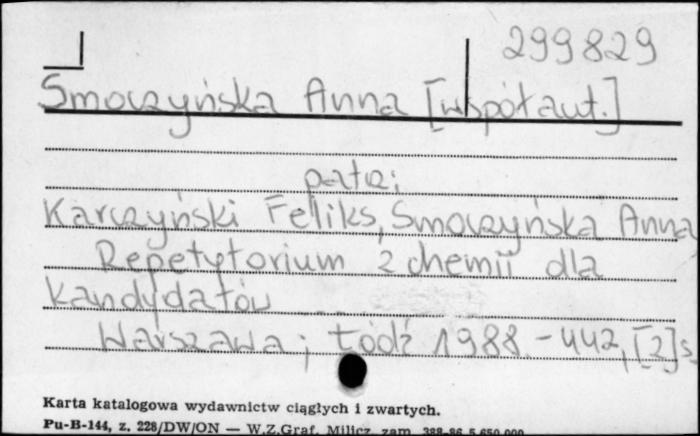 299829
Smoczyńska Anna [współaut.]
patrz:
Karczyński Feliks, Smoczyńska Anna
Repetytorium z chemii dla
kandydatów
Warszawa; Łódź 1988. - 442, [2] s.
Karta katalogowa wydawnictw ciągłych i zwartych.
Pu-B-144, z. 228/DW/ON — W.Z.Graf. Milicz, zam. 388-86 5.650.000